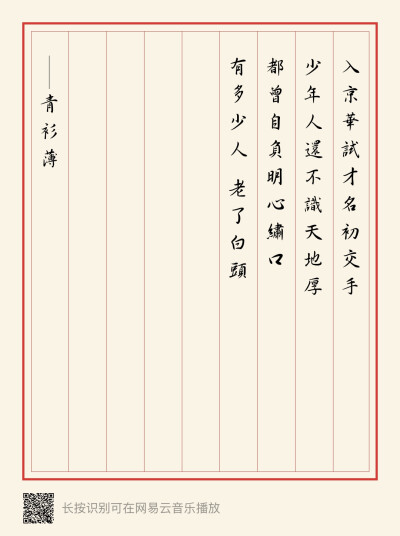 入京華試才名初交手
少年人還不識天地厚
都曾自負明心繡口
有多少人 老了白頭
——青衫薄
长按识别可在网易云音乐播放